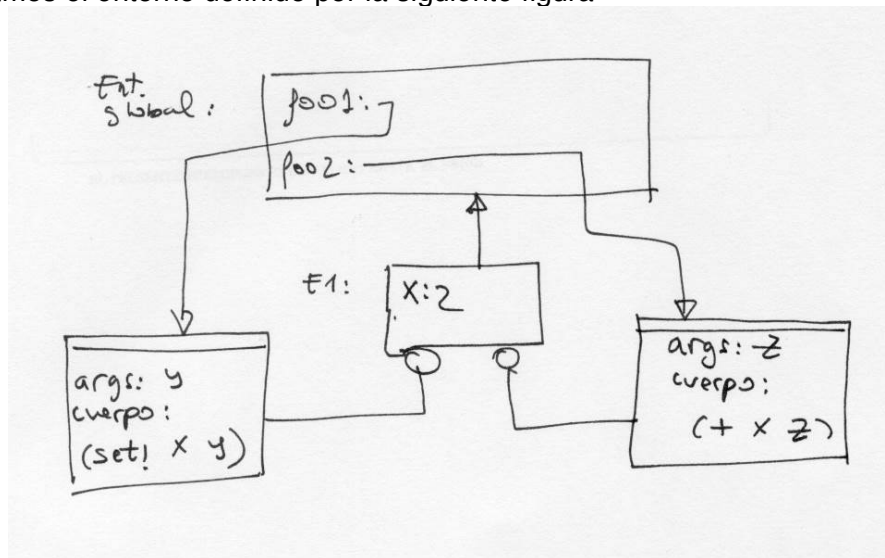 Ent.
global:
foo1:
foo2:
E1:
x:2
args: y
cuerpo:
(set! x y)
args: z
cuerpo:
(+ x z)